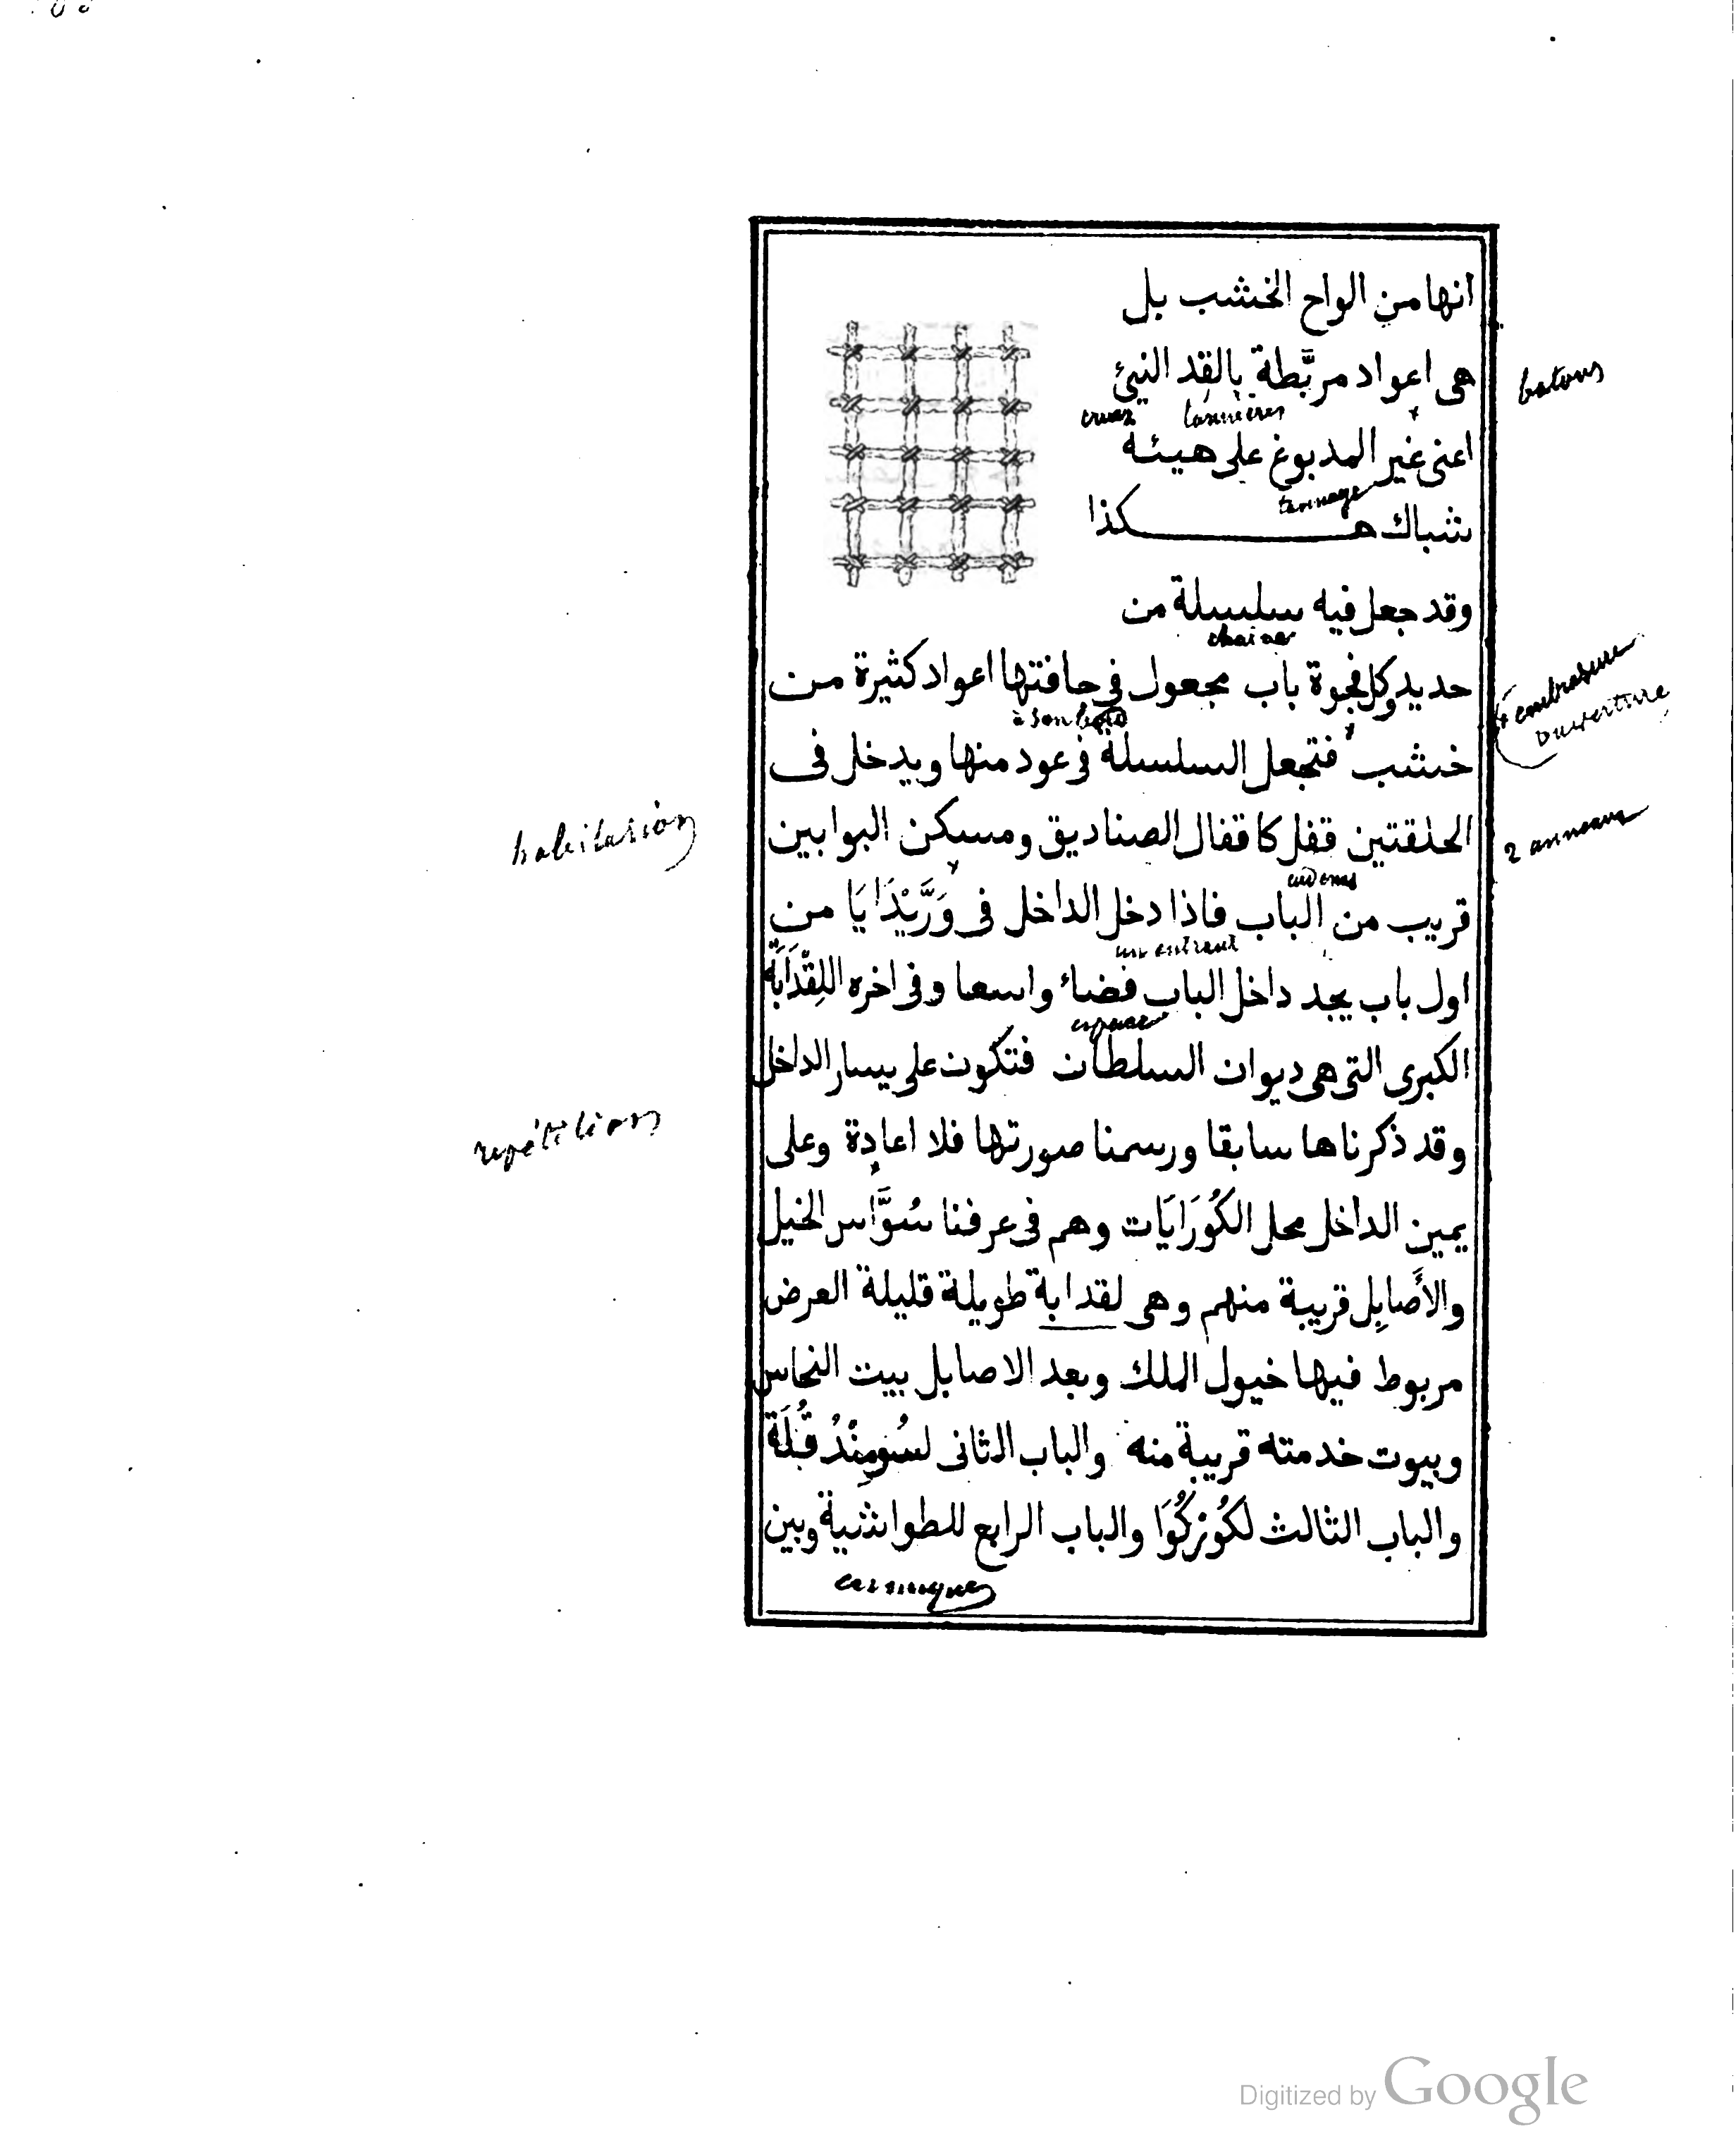 انها من الواح الخشب بل
هى اعواد مربّطة بالقد النيئ
batons
crues lannières
اعنى غير المدبوغ على هيئة
tannage
شباك هكذا
وقد جعل فيه سلسلة من
chaine
حديد وكل فجوة باب مجعول فى حافتها اعواد كثيرة من
embrasure
ouverture
à son bord
خشب فتجعل السلسلة فى عود منها ويدخل فى
الحلقتين قفل كاقفال الصناديق ومسكن البوابين
2 anneaux
habitation
قريب من الباب فاذا دخل الداخل فى وَرَّيْدَايَا من
un entrant
اول باب يجد داخل الباب فضاءً واسعا وفى اخره اللِقْدَابَة
espace
الكبرى التى هى ديوان السلطان فتكون على يسار الداخل
وقد ذكرناها سابقا ورسمنا صورتها فلا اعادة وعلى
repétition
يمين الداخل محل الكُورَايَات وهم فى عرفنا سُوَّاس الخيل
والأَصَابِل قريبة منهم وهى لقدابة طويلة قليلة العرض
مربوط فيها خيول الملك وبعد الاصابل بيت النحاس
وبيوت خدمته قريبة منه والباب الثانى لسُومِنْدُقُلَة
والباب الثالث لكُوزكُوَا والباب الرابع للطواشية وبين
Digitized by Google